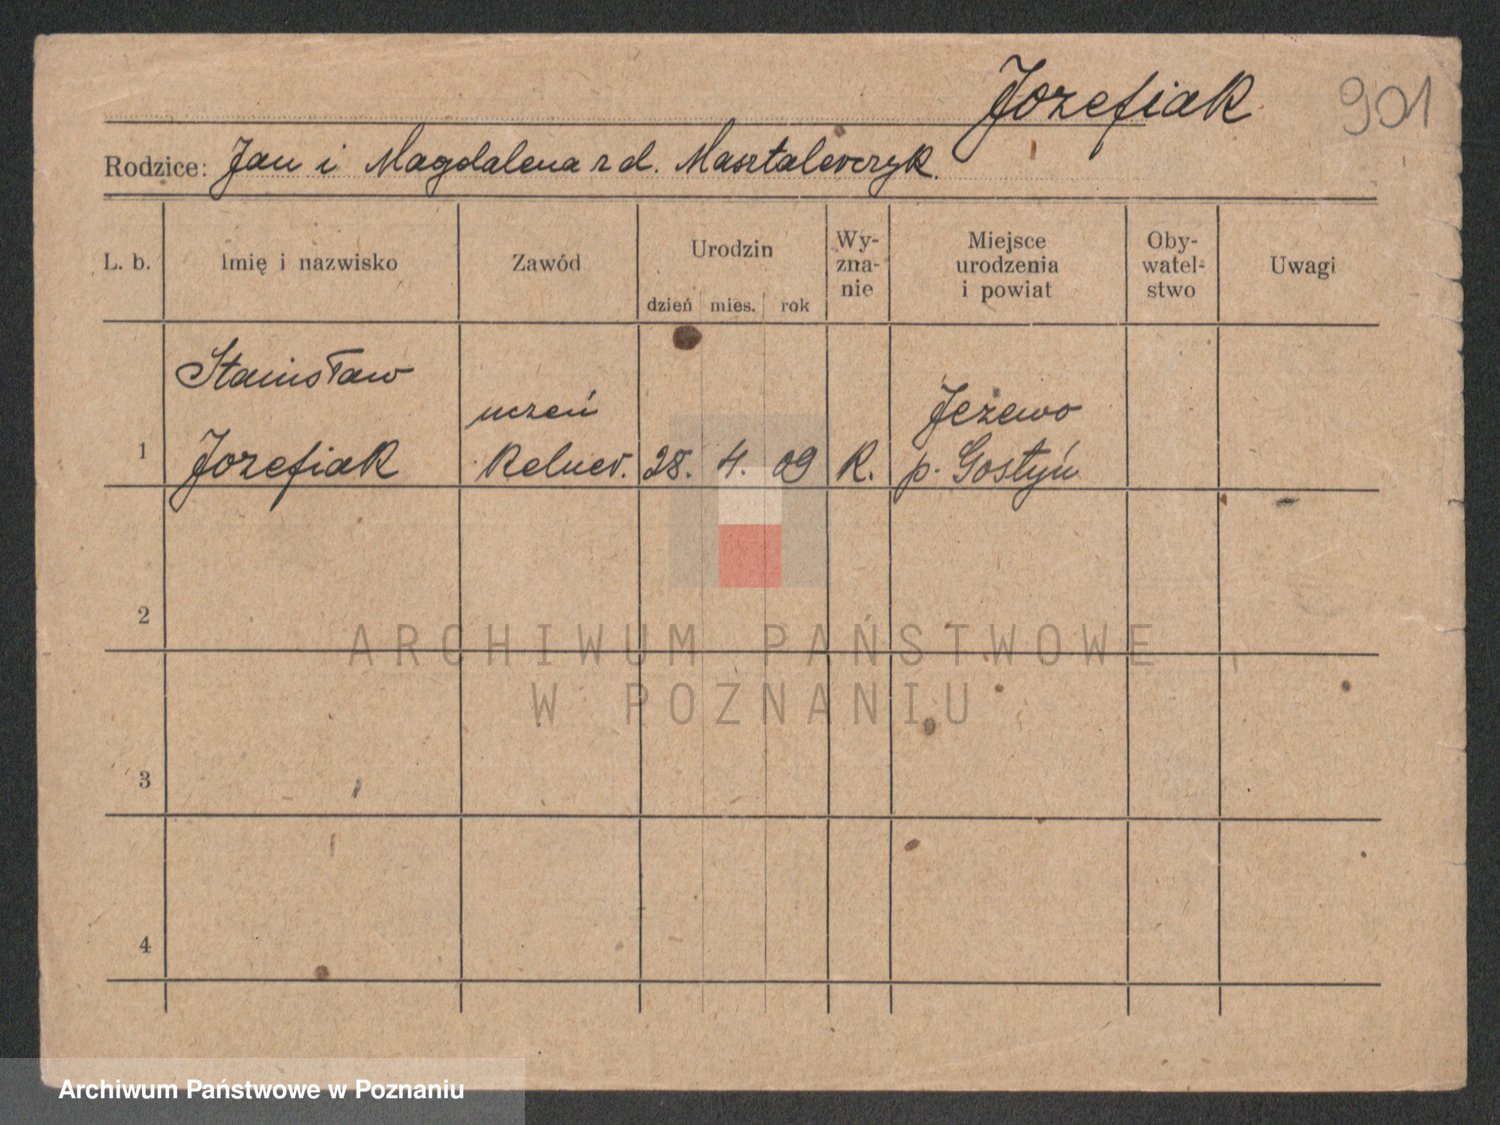 Jozefiak
901
Rodzice: Jan i Magdalena z d. Masztalerczyk.
L. b.
Imię i nazwisko
Zawód
Urodzin
dzień mies. rok
Wy-
zna-
nie
Miejsce
urodzenia
i powiat
Oby-
watel-
stwo
Uwagi
1
Stanisław
Jozefiak
uczeń
kelner.
28. 4. 09
R.
Jeżewo
p. Gostyń
2
3
4
ARCHIWUM PAŃSTWOWE
W POZNANIU
Archiwum Państwowe w Poznaniu